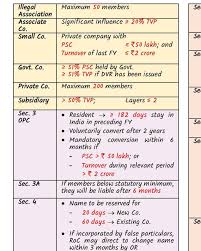 Illegal Association
Maximum 50 members
Associate Co.
Significant influence ≥ 20% TVP
Small Co.
Private company with
PSC ≤ ₹50 lakh; and
Turnover of last FY ≤ ₹2 crore
Govt. Co.
≥ 51% PSC held by Govt.
≥ 51% TVP if DVR has been issued
Private Co.
Maximum 200 members
Subsidiary
> 50% TVP; Layers ≤ 2
Sec. 3
OPC
• Resident → ≥ 182 days stay in
India in preceding FY
• Voluntarily convert after 2 years
• Mandatory conversion within 6
months if
- PSC > ₹ 50 lakh; or
- Turnover during relevant period
> ₹ 2 crore
Sec. 3A
If members below statutory minimum,
they will be liable after 6 months
Sec. 4
• Name to be reserved for
- 20 days → New Co.
- 60 days → Existing Co.
• If incorporated by false particulars,
RoC may direct to change name
within 3 months by OR
Se
Se
Se